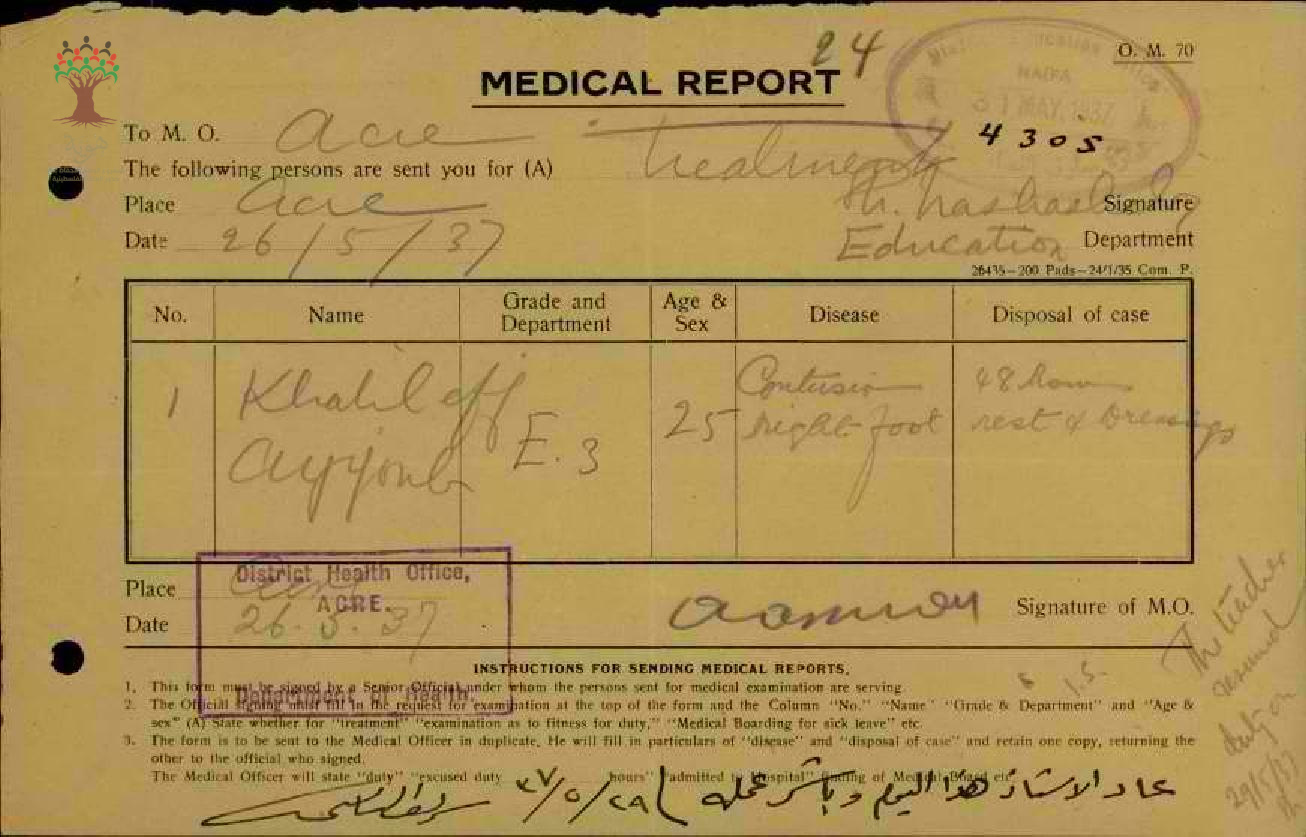 24
O. M. 70
MEDICAL REPORT
District Education Office
HAIFA
31 MAY 1937
4305
To M. O. Acre
The following persons are sent you for (A) treatment
Place Acre Signature
Date 26/5/37 Education Department
26435—200 Pads—24/1/35 Com. P.
No. Name Grade and Department Age & Sex Disease Disposal of case
1 Khalil eff Ayyoub E.3 25 Contusion right foot 48 hours rest & Dressings
District Health Office,
ACRE.
Department of Health.
Place Acre
Date 26.5.37 Signature of M.O.
The teacher
resumed
duty on
29/5/37
INSTRUCTIONS FOR SENDING MEDICAL REPORTS.
1. This form must be signed by a Senior Official under whom the persons sent for medical examination are serving.
2. The Official signing must fill in the request for examination at the top of the form and the Column "No." "Name" "Grade & Department" and "Age &
sex" (A) State whether for "treatment" "examination as to fitness for duty," "Medical Boarding for sick leave" etc.
3. The form is to be sent to the Medical Officer in duplicate. He will fill in particulars of "disease" and "disposal of case" and retain one copy, returning the
other to the official who signed.
The Medical Officer will state "duty" "excused duty hours" "admitted to Hospital" finding of Medical Board etc.
عاد الاستاذ هذا اليوم وباشر عمله ٢٩/٥/٣٧